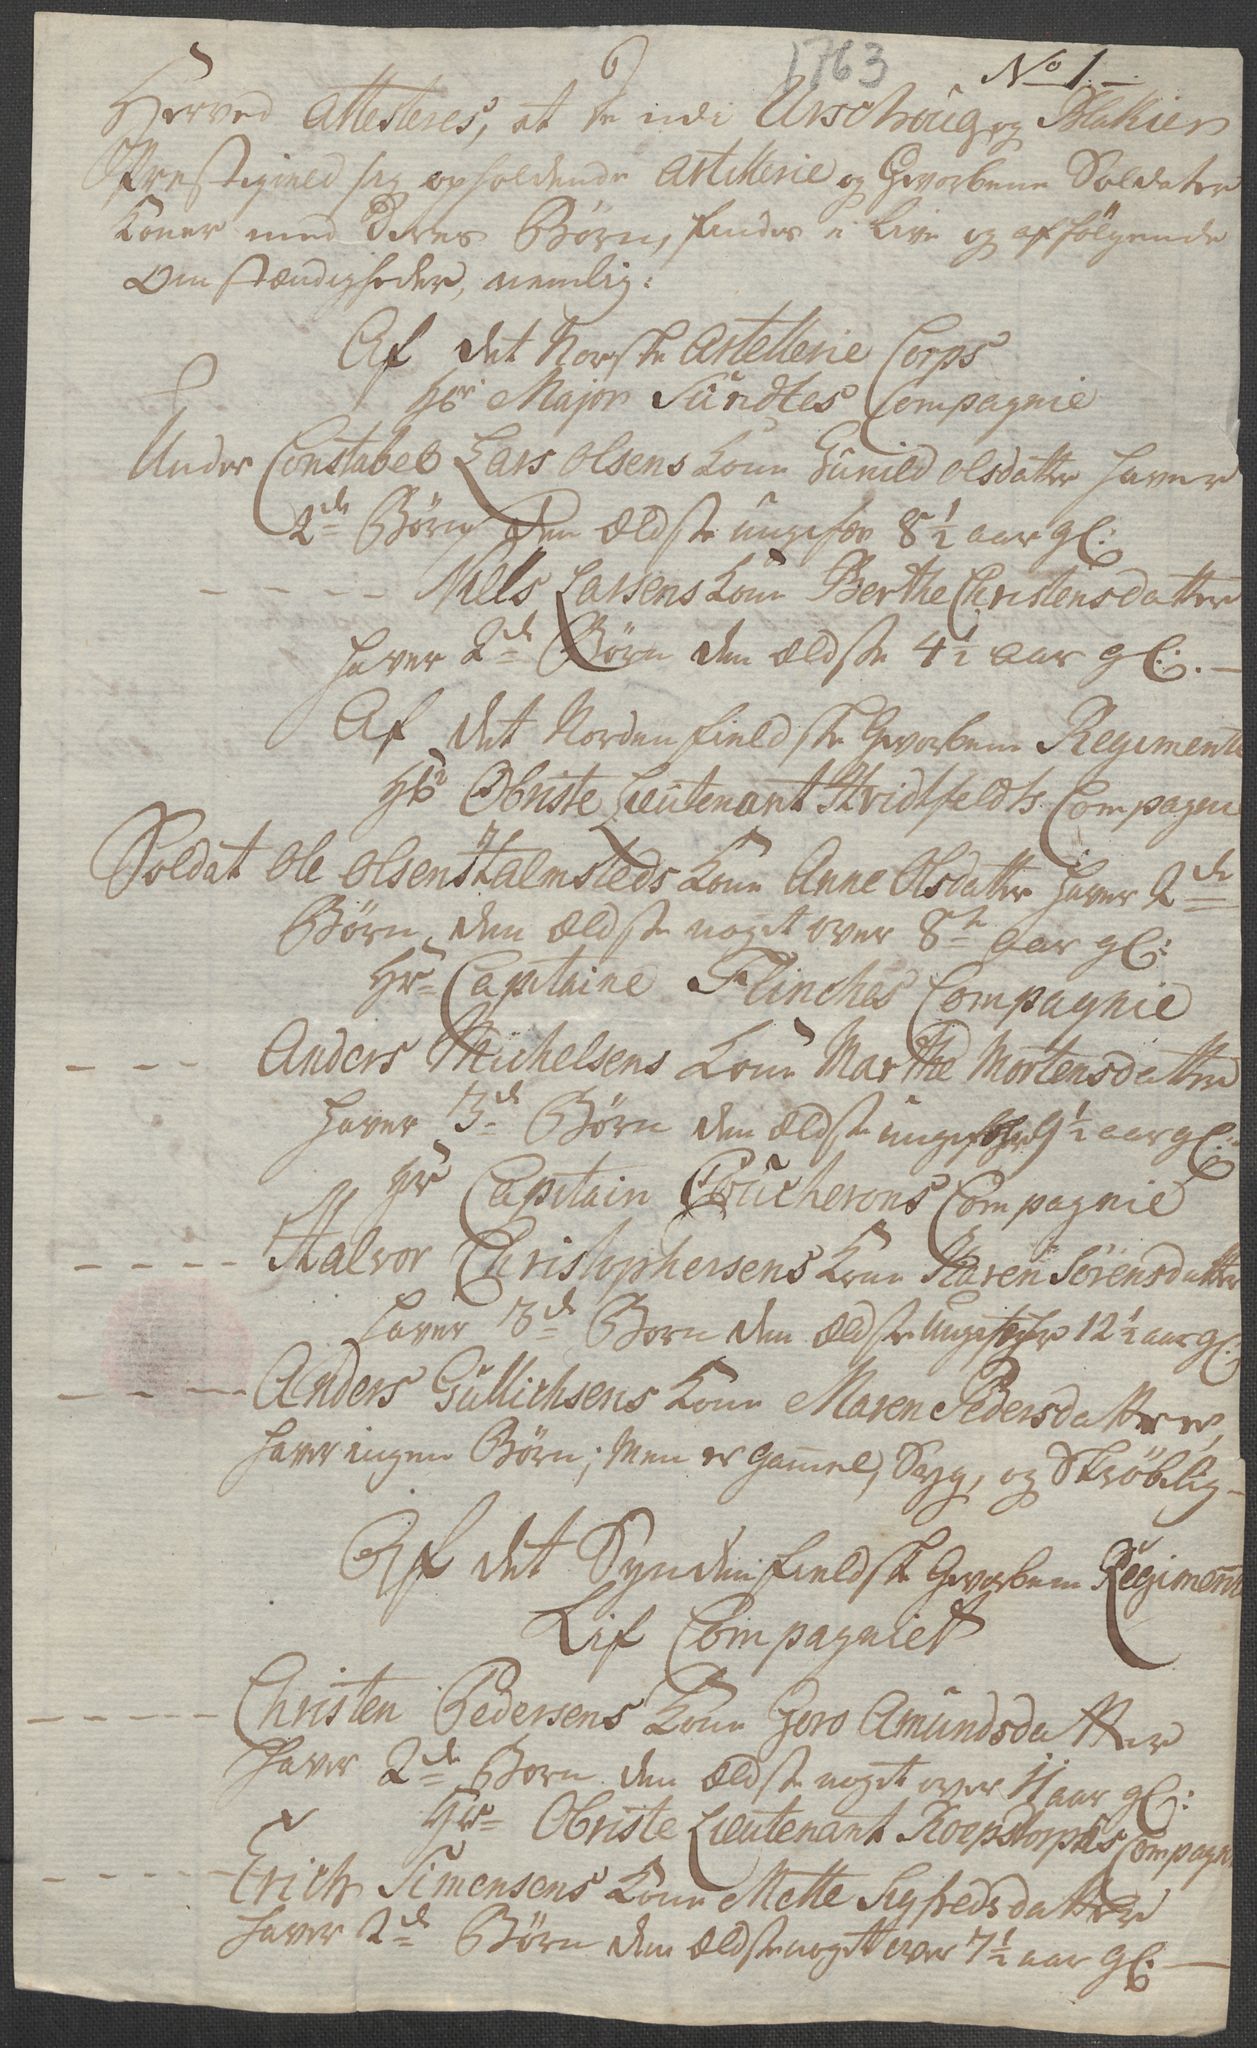 1763
No 1.
Herved Attesteres, at de udi Urschoug og Blakier
Præstegield sig opholdende Artillerie og Gevorbene Soldater
Koner med deres Börn, findes i Live og af fölgende
Omstændigheder, nemlig:
Af det Norske Artellerie Corps
Hr Major Sundtes Compagnie
Under Constabel Lars Olsens Kone Gunild Olsdatter haver
2de Börn den ældste ungefær 8 1/2 aar gl:
- - - - Niels Larsens Kone Berthe Christensdatter
haver 2de Börn den ældste 4 1/2 aar gl:. -
Af det Nordenfieldske Gevorbene Regimente
Hr Obriste Lieutenant Hvidtfeldts Compagnie
Soldat Ole Olsens Halmsteds Kone Anne Olsdatter haver 2de
Börn, den ældste noget over 8te aar gl:
Hr Capitaine Flinches Compagnie
- - - Anders Michelsens Kone Marthe Mortensdatter
haver 3de Börn den ældste ungefehr 9 1/2 aar gl:
Hr Capitain Coucherons Compagnie
- - - - Halvor Christophersens Kone Karen Sörensdatter
haver 3de Born den ældste ungefehr 12 1/2 aar gl:
- - - - Anders Gullichsens Kone Maren Pedersdatter,
haver ingen Börn; Men er gamel, Syg, og Skröbelig -
Af det Syndenfieldske Gevorbene Regimente
Lif Compagniet
- - - - - Christen Pedersens Kone Goro Amundsdatter
haver 2de Born den ældste noget over 11 aar gl:
Hr Obriste Lieutenant Roepstorphs Compagnie
- - - - - Erich Simensens Kone Mette Sigfredsdatter
haver 2de Börn den ældste noget over 7 1/2 aar gl: -